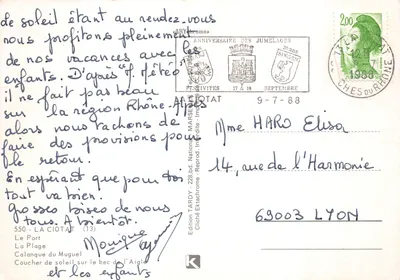 Le soleil étant au rendez-vous
nous profitons pleinement
de nos vacances avec les
enfants. D'après "M. Météo"
il ne fait pas beau
sur la région Rhône-Alpes
alors nous tachons de
faire des provisions pour
le retour.
En espérant que pour toi
tout va bien.
Grosses bises de nous
tous. A bientôt.
Monique
et les enfants
550 - LA CIOTAT (13)
Le Port
La Plage
Calanque du Muguel
Coucher de soleil sur le bec de l'Aigle
Edition TARDY - 228, bd. National - MARSEILLE
Cliché Ektachrome - Reprod. Interdite
ANNIVERSAIRE DES JUMELAGES
FESTIVITES 17 & 18 SEPTEMBRE
LA CIOTAT 9-7-88
2,00
1988
BOUCHES DU RHONE
Mme HARO Elisa
14, rue de l'Harmonie
69003 LYON
K